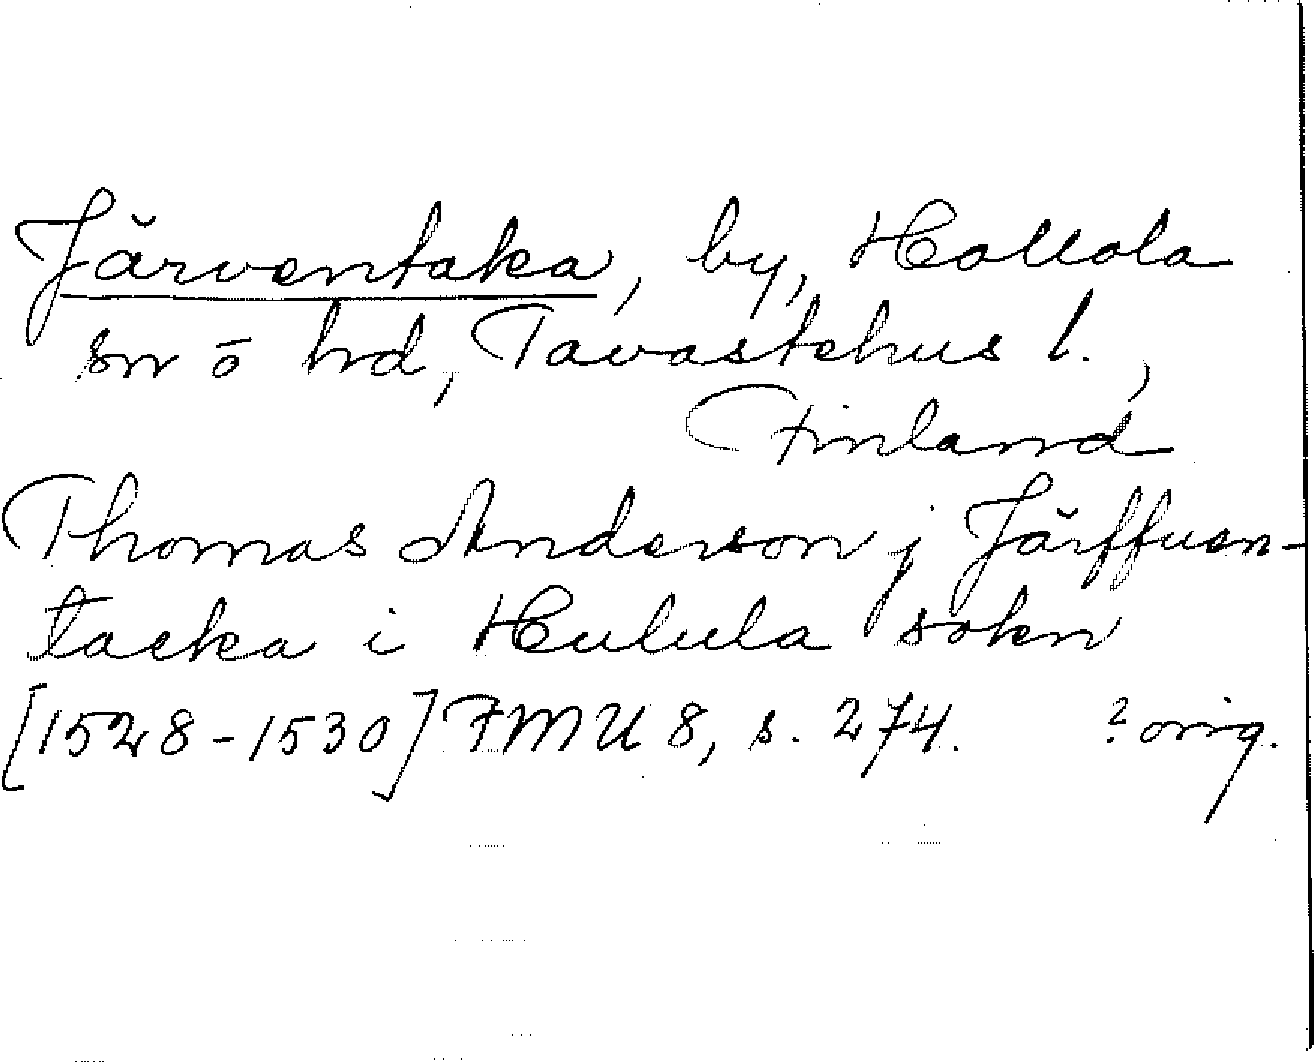 Järventaka, by, Hollola
sn o hd, Tavastehus l.,
Finland
Thomas Anderson j Järffuen-
tacka i Hulula sokn
[1528-1530] FMU 8, s. 274. ? orig.